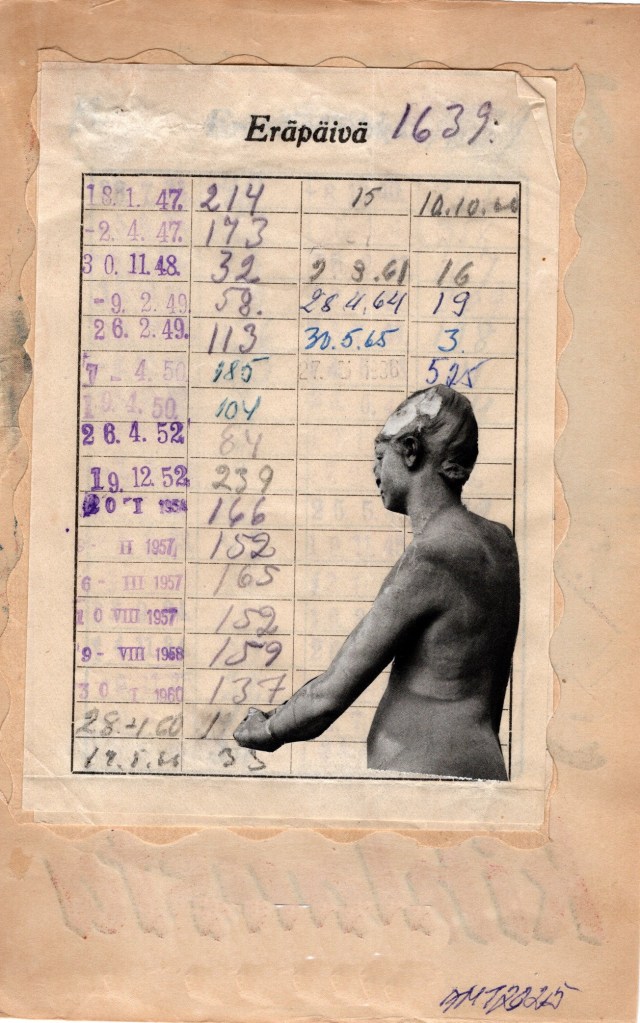 Eräpäivä 1639.
18. 1. 47. 214 15 10.10.60
-2. 4. 47. 173
30. 11. 48. 32 2 9.61 16
-9. 2. 49 58. 28.4.64 19
26. 2. 49. 113 30.5.65 3.
7 - 4. 50 185 525
19. 4. 50. 104
26. 4. 52 84
19. 12. 52 239
20 I 166
- II 1957, 152
6- III 1957 165
10 VIII 1957 152
9- VIII 1958 159
30 - I 1960 137
28.4.60
33